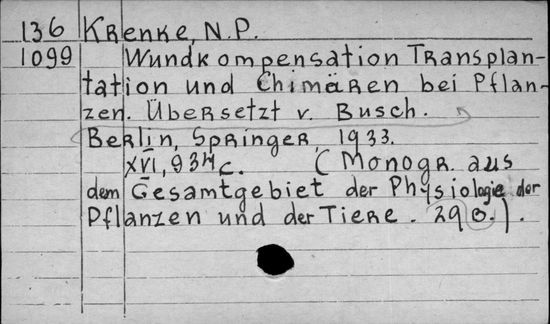 136 Krenke, N.P.
1099 Wundkompensation Transplan-
tation und Chimären bei Pflan-
zen. Übersetzt v. Busch.
Berlin, Springer, 1933.
XVI, 934 c. (Monogr. aus
dem Gesamtgebiet der Physiologie der
Pflanzen und der Tiere. 29 B.).